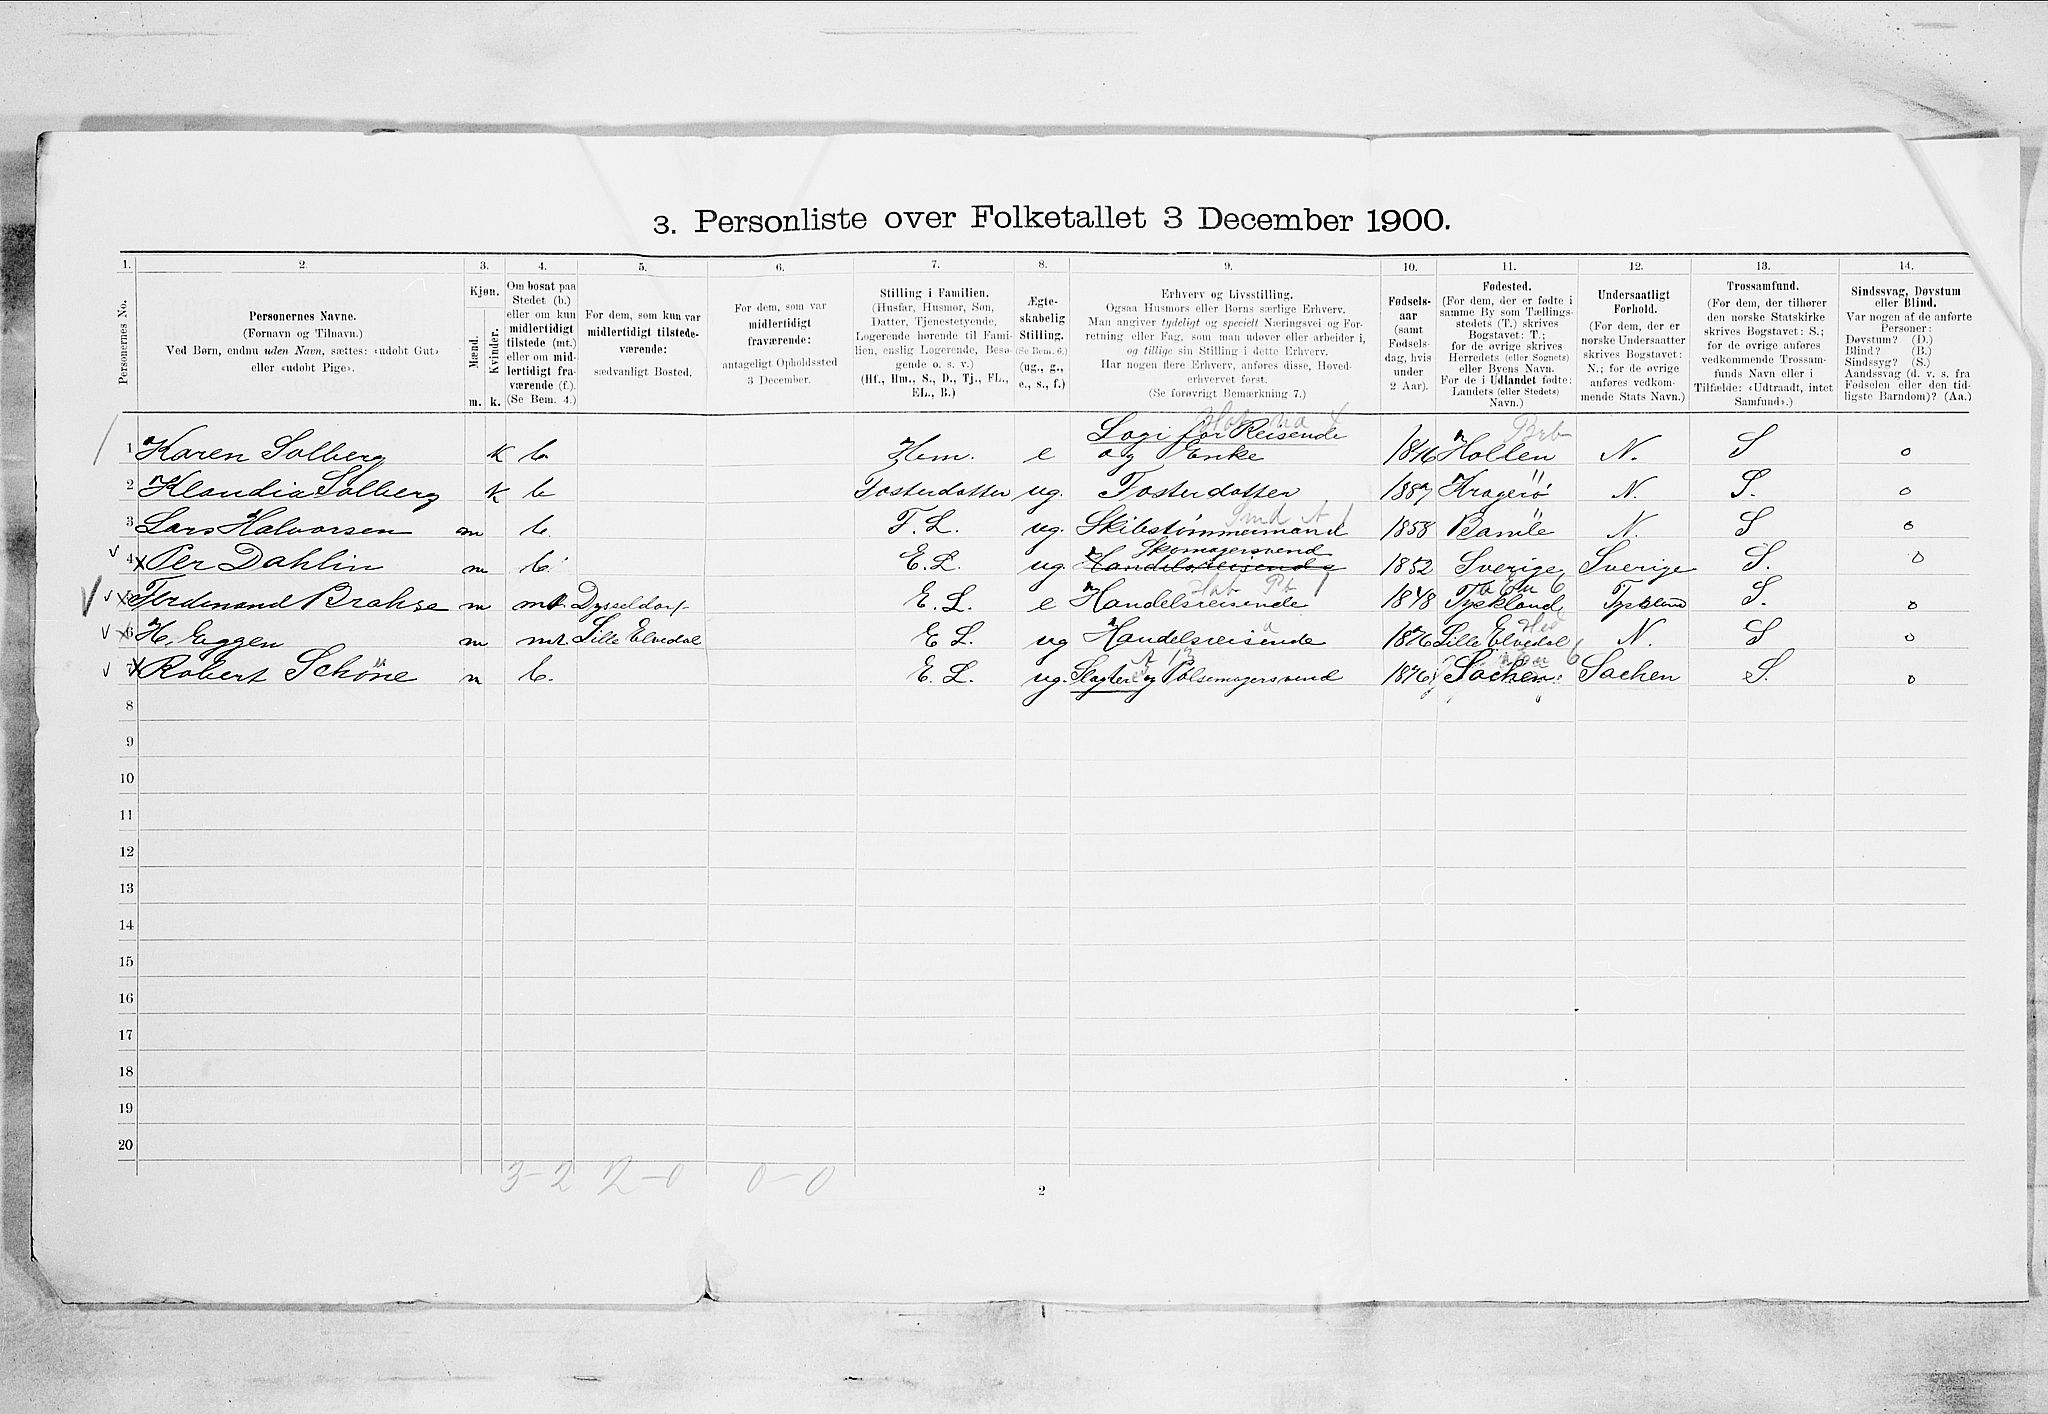 3. Personliste over Folketallet 3 December 1900.
1. 2. 3. 4. 5. 6. 7. 8. 9. 10. 11. 12. 13. 14.
Personernes No.
Personernes Navne.
(Fornavn og Tilnavn.)
Ved Børn, endnu uden Navn, sættes: «udøbt Gut»
eller «udøbt Pige».
Kjøn.
Mænd.
Kvinder.
m. k.
Om bosat paa
Stedet (b.)
eller om kun
midlertidigt
tilstede (mt.)
eller om mid-
lertidigt fra-
værende (f.).
(Se Bem. 4.)
For dem, som kun var
midlertidigt tilstede-
værende:
sædvanligt Bosted.
For dem, som var
midlertidigt
fraværende:
antageligt Opholdssted
3 December.
Stilling i Familien.
(Husfar, Husmor, Søn,
Datter, Tjenestetyende,
Logerende hørende til Fami-
lien, enslig Logerende, Besø-
gende o. s. v.)
(Hf., Hm., S., D., Tj., FL.,
EL., B.)
Ægte-
skabelig
Stilling.
(Se Bem. 6.)
(ug., g.,
e., s., f.)
Erhverv og Livsstilling.
Ogsaa Husmors eller Børns særlige Erhverv.
Man angiver tydeligt og specielt Næringsvei og For-
retning eller Fag, som man udøver eller arbeider i,
og tillige sin Stilling i dette Erhverv.
Har nogen flere Erhverv, anføres disse, Hoved-
erhvervet først.
(Se forøvrigt Bemærkning 7.)
Fødsels-
aar
(samt
Fødsels-
dag, hvis
under
2 Aar).
Fødested.
(For dem, der er fødte i
samme By som Tællings-
stedets (T.) skrives
Bogstavet: T.;
for de øvrige skrives
Herredets (eller Sognets)
eller Byens Navn.
For de i Udlandet fødte:
Landets (eller Stedets)
Navn.)
Undersaatligt
Forhold.
(For dem, der er
norske Undersaatter
skrives Bogstavet:
N.; for de øvrige
anføres vedkom-
mende Stats Navn.)
Trossamfund.
(For dem, der tilhører
den norske Statskirke
skrives Bogstavet: S.;
for de øvrige anføres
vedkommende Trossam-
funds Navn eller i
Tilfælde: «Udtraadt, intet
Samfund».)
Sindssvag, Døvstum
eller Blind.
Var nogen af de anførte
Personer:
Døvstum? (D.)
Blind? (B.)
Sindssyg? (S.)
Aandssvag (d. v. s. fra
Fødselen eller den tid-
ligste Barndom)? (Aa.)
1 Karen Solberg K b. Hm. e Logi for Reisende og Enke 1846 Hollen N. S 0
2 Klaudia Solberg K b Fosterdatter ug. Fosterdatter 1887 Kragerø N. S. 0
3 Lars Halvorsen m b. F. L. ug. Skibstømmermand 1858 Bamle N. S 0
4 Per Dahlin m b. E. L. ug Skomagersvend Handelsreisende 1852 Sverige Sverige S. 0
5 Ferdinand Brahse m mt. Dysseldorf E. L. e Handelsreisende 1848 Tyskland Tyskland S. 0
6 H. Eggen m mt. Lille Elvedal E L. ug Handelsreisende 1876 Lille Elvedal N. S 0
7 Robert Schöne m b. E. L. ug. Slagter og Pølsemagersvend 1876 Sachen Sachen S. 0
8
9
10
11
12
13
14
15
16
17
18
19
20
3-2 2-0 0-0
2